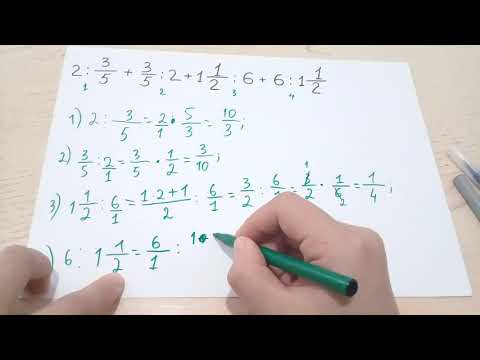 2 : 3/5 + 3/5 : 2 + 1 1/2 : 6 + 6 : 1 1/2
1 2 3 4
1) 2 : 3/5 = 2/1 · 5/3 = 10/3 ;
2) 3/5 : 2/1 = 3/5 · 1/2 = 3/10 ;
3) 1 1/2 : 6/1 = 1·2+1/2 : 6/1 = 3/2 : 6/1 = 1 3/2 · 1/6 2 = 1/4 ;
) 6 : 1 1/2 = 6/1 : 1·